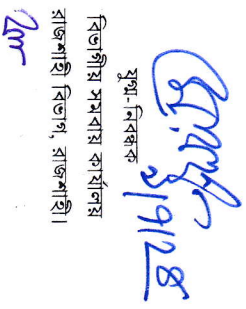 ১/৭/২৪
যুগ্ম-নিবন্ধক
বিভাগীয় সমবায় কার্যালয়
রাজশাহী বিভাগ, রাজশাহী।